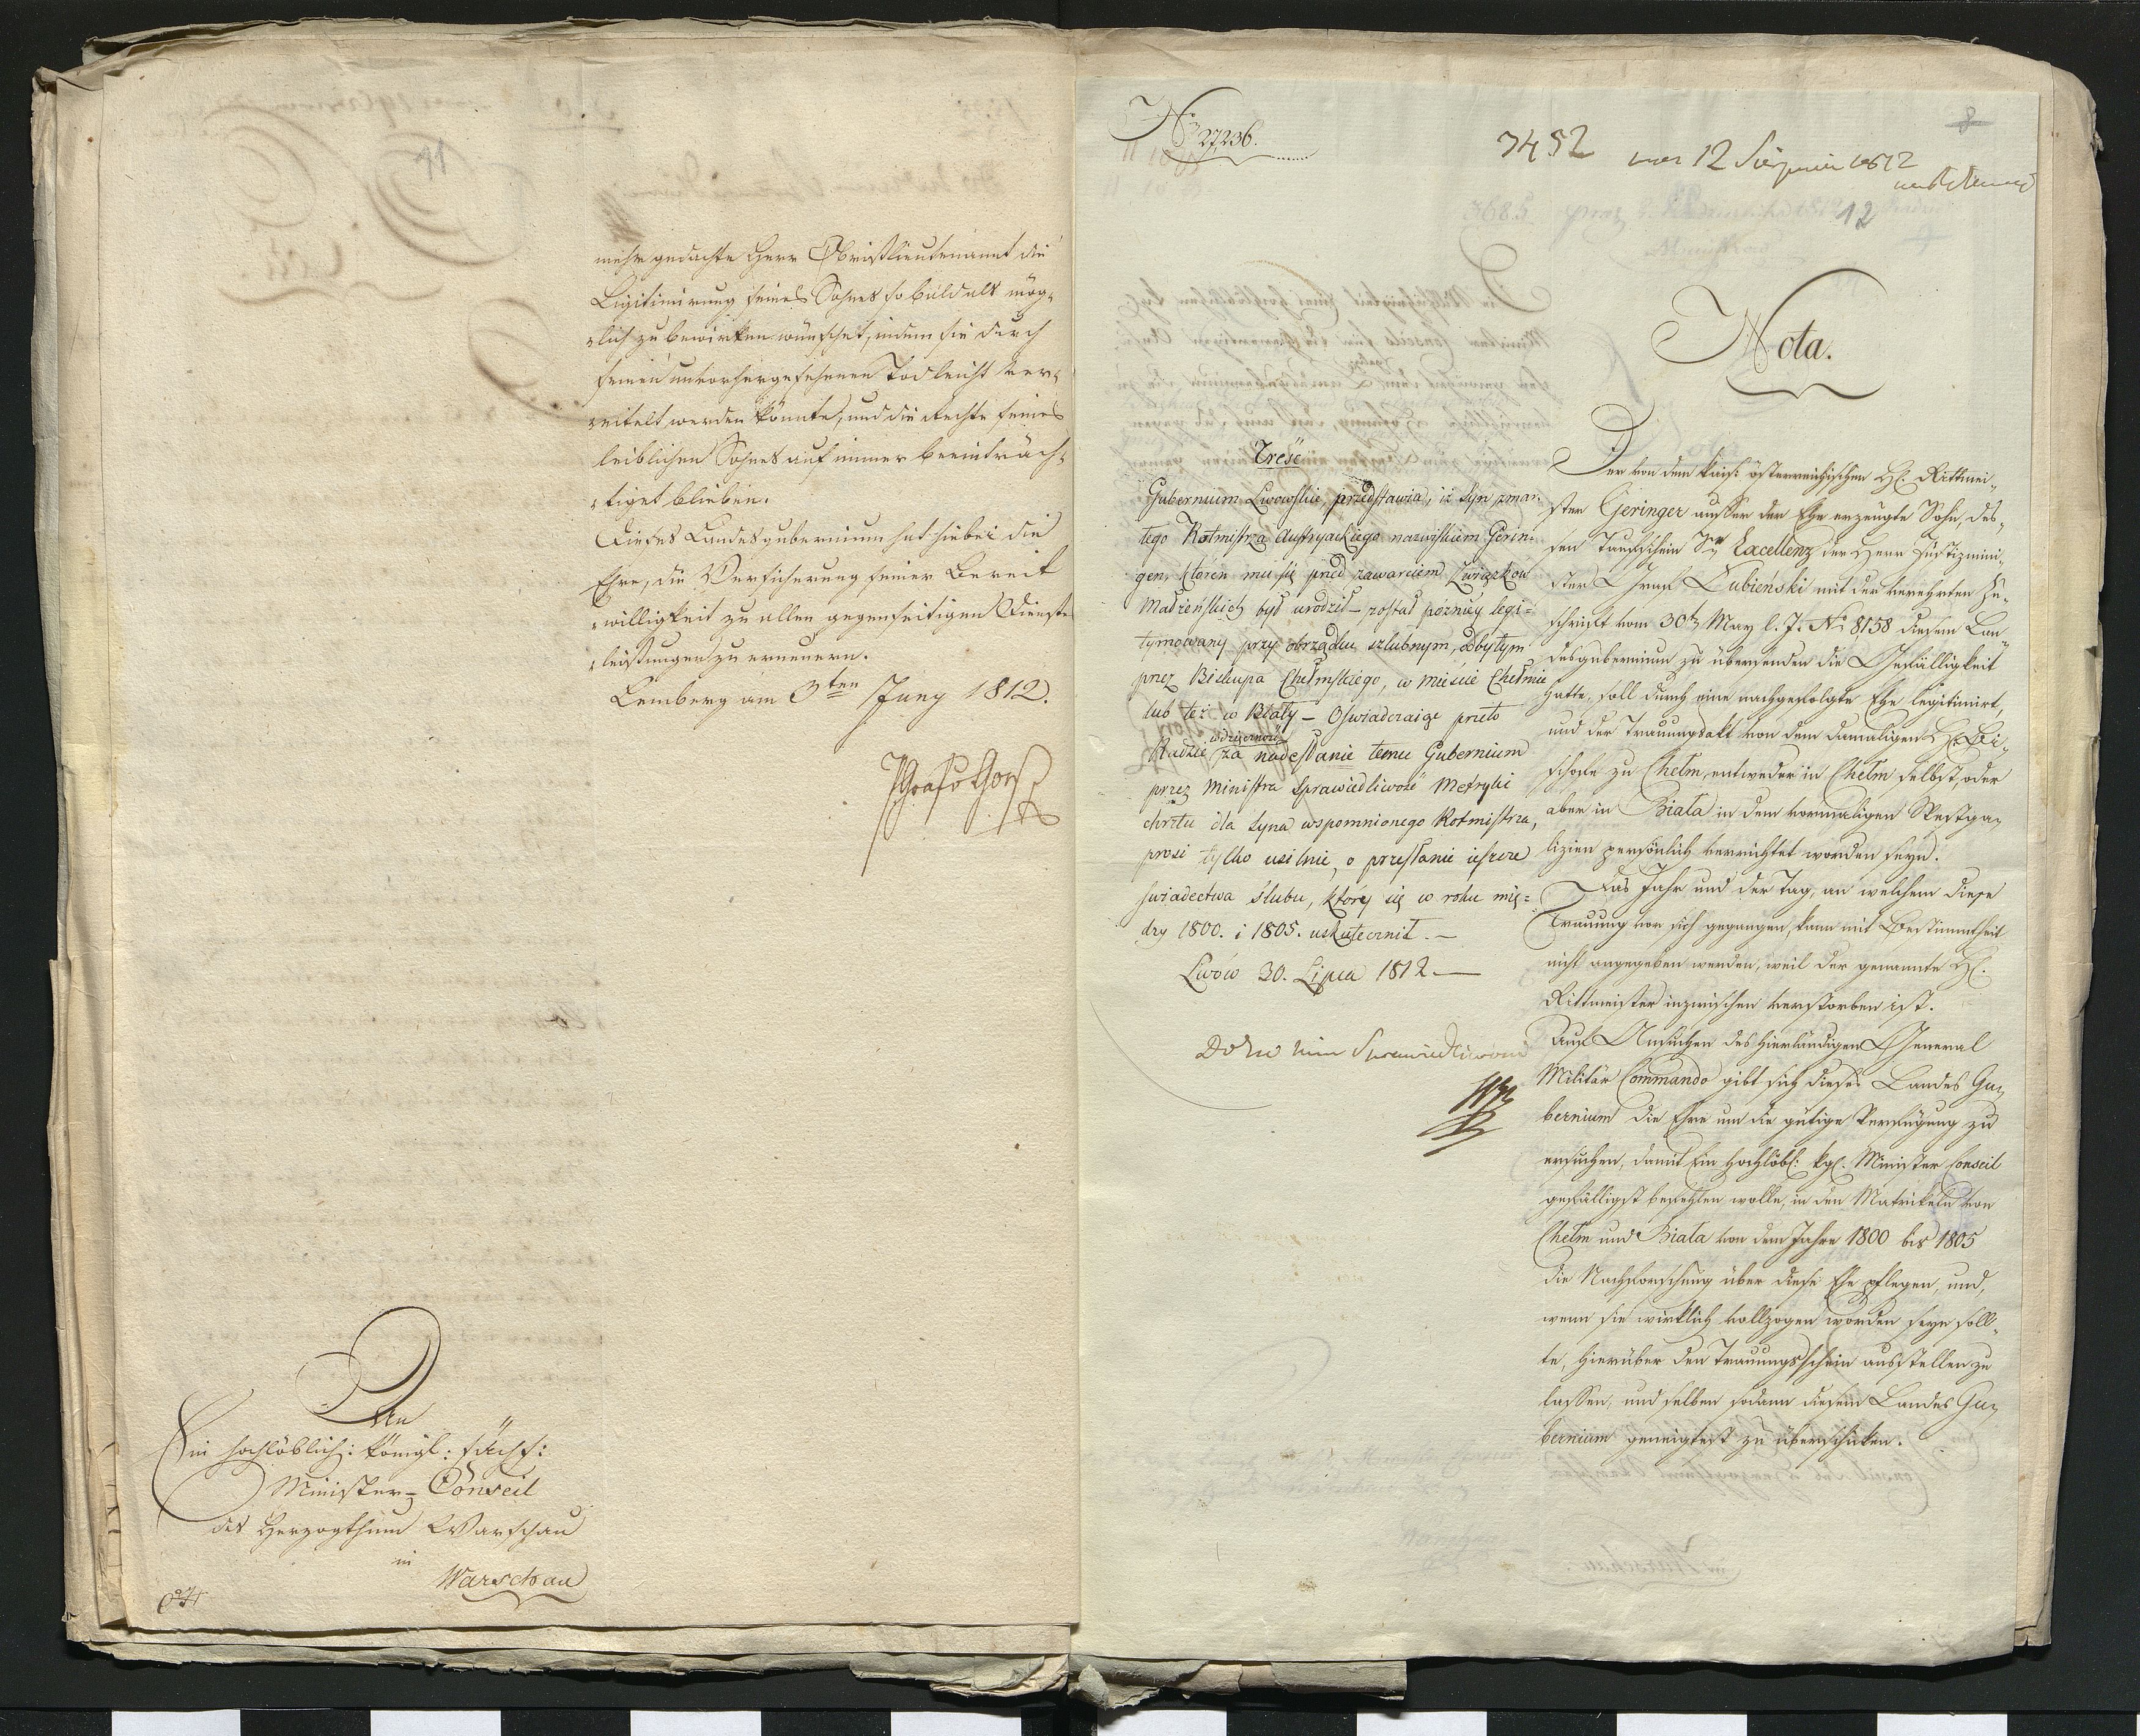 11
mehr gedachte Herr Obristlieutenannt die
Legitimirung seines Sohnes so bald als mög-
lich zu bewirken wünschet, indem sie durch
seinen unvorhergesehenen Tod leicht ver-
eitelt werden könnte, und die Rechte seines
leiblichen Sohnes auf immer beeinträch-
tiget blieben.
Dieses Landesgubernium hat hiebei die
Ehre, die Versicherung seiner Bereit
willigkeit zu allen gegenseitigen Dienst-
leistungen zu erneuern.
Lemberg am 3ten Juny 1812.
An
Ein hochlöblich: königl: sächs:
Minister-Conseil
des Herzogthum Warschau
in
Warschau
No 27,236.
7452 12 Sierpnia 1812
8
12
Nota.
Treść
Gubernium Lwowskie, przedstawia, iż syn zmar-
łego Rotmistrza Austryackiego nazwiskiem Gerin-
gen, któren mu się przed zawarciem Związków
Małżeńskich był urodził – został późniey legi=
tymowany przy obrządku szlubnym, odbytym
przez Biskupa Chełmskiego, w mieście Chełmie
lub też w Biały – Oświadczaiąc przeto
Radzie wdzięczność za nadesłanie temu Gubernium
przez Ministra Sprawiedliwość Metryki
chrztu dla Syna wspomnionego Rotmistrza,
prosi tylko usilnie, o przesłanie ieszcze
świadectwa ślubu, który się w roku mię=
dzy 1800. i 1805. uskutecznił. –
Lwów 30. Lipca 1812. –
Der von dem kais: österreichischen H: Rittmei-
ster Geringer ausser der Ehe erzeugte Sohn, des-
sen Taufschein Sr Excellenz der Herr Justizmini-
ster Graf Łubieński mit der verehrten Zu-
schrift vom 30ten May l. J. No 8158 diesem Lan-
desgubernium zu übersenden die Gefälligkeit
hatte, soll durch eine nachgefolgte Ehe legitimirt,
und der Trauungsakt von dem damaligen H: Bi-
schofe zu Chełm, entweder in Chełm selbst, oder
aber in Biała in dem vormaligen Westga-
lizien persönlich verrichtet worden seyn.
Das Jahr und der Tag, an welchem diese
Trauung vor sich gegangen, kann mit Bestimmtheit
nicht angegeben werden, weil der genannte H:
Rittmeister inzwischen verstorben ist.
Auf Ansuchen des hierländigen General
Militär Commando gibt sich dieses Landes Gu-
bernium die Ehre um die gütige Verfügung zu
ersuchen, damit Ein Hochlöbl: kgl. Minister Conseil
gefälligst befehlen wolle, in den Matrikeln von
Chełm und Biała von dem Jahre 1800 bis 1805
die Nachforschung über diese Ehe pflegen, und,
wenn sie wirklich vollzogen worden seyn soll-
te, hierüber den Trauungsschein ausstellen zu
lassen, und selben sodann diesem Landes Gu-
bernium geneigtest zu überschicken.